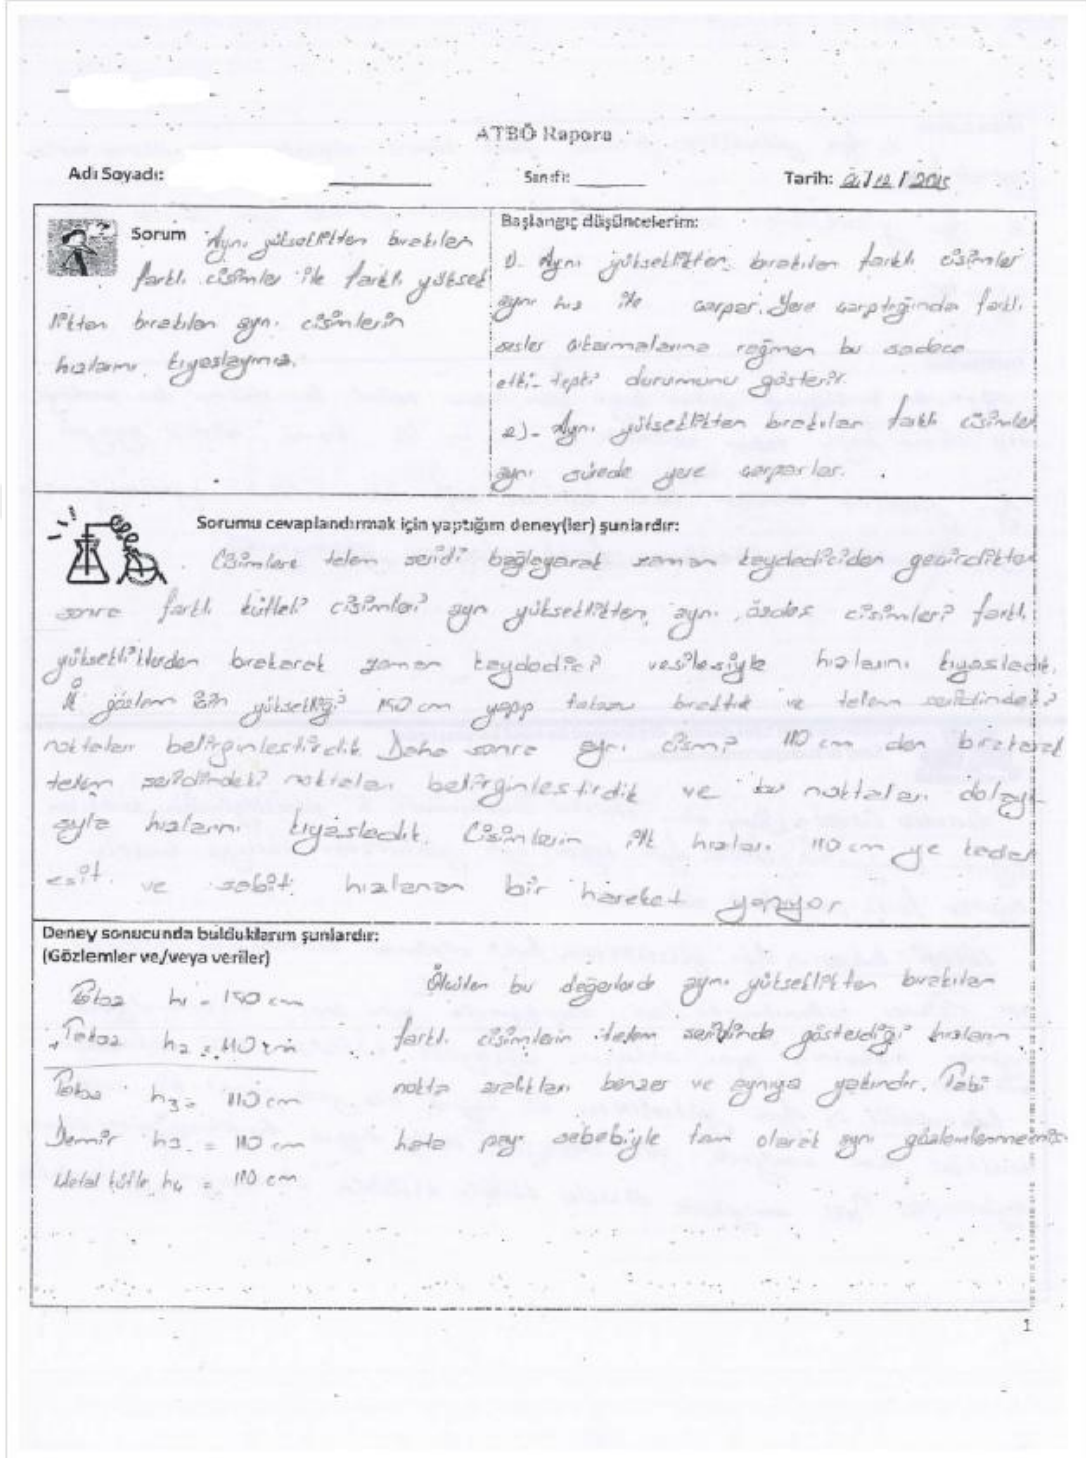 ATBÖ Raporu
Adı Soyadı: Sınıfı: Tarih: /12/2015
Sorum Aynı yükseklikten bırakılan
farklı cisimler ile farklı yüksek
likten bırakılan aynı cisimlerin
hızlarını kıyaslayınız.
Başlangıç düşüncelerim:
1). Aynı yükseklikten bırakılan farklı cisimler
aynı hız ile çarpar. Yere çarptığında farklı
sesler çıkarmalarına rağmen bu sadece
etki-tepki durumunu gösterir.
2)- Aynı yükseklikten bırakılan farklı cisimler
aynı sürede yere çarparlar.
Sorumu cevaplandırmak için yaptığım deney(ler) şunlardır:
Cisimlere telem şeridi bağlayarak zaman kaydediciden geçirdikten
sonra farklı kütleli cisimleri aynı yükseklikten, aynı, özdeş cisimleri farklı
yüksekliklerden bırakarak zaman kaydedici vesilesiyle hızlarını kıyasladık.
İlk gözlem için yüksekliği 150 cm yapıp takozu bıraktık ve telem şeridindeki
noktaları belirginleştirdik. Daha sonra aynı cismi 110 cm den bırakarak
telem şeridindeki noktaları belirginleştirdik ve bu noktaları dolayı-
sıyla hızlarını kıyasladık. Cisimlerin ilk hızları 110 cm ye kadar
eşit ve sabit hızlanan bir hareket yapıyor
Deney sonucunda bulduklarım şunlardır:
(Gözlemler ve/veya veriler)
Takoz h1 = 150 cm
Takoz h2 = 110 cm
Takoz h3 = 110 cm
Demir h3 = 110 cm
Metal kütle h4 = 110 cm
Ölçülen bu değerlerde aynı yükseklikten bırakılan
farklı cisimlerin telem şeridinde gösterdiği hızların
nokta aralıkları benzer ve aynıya yakındır. Tabi
hata payı sebebiyle tam olarak aynı gözlemlenmemiş
1